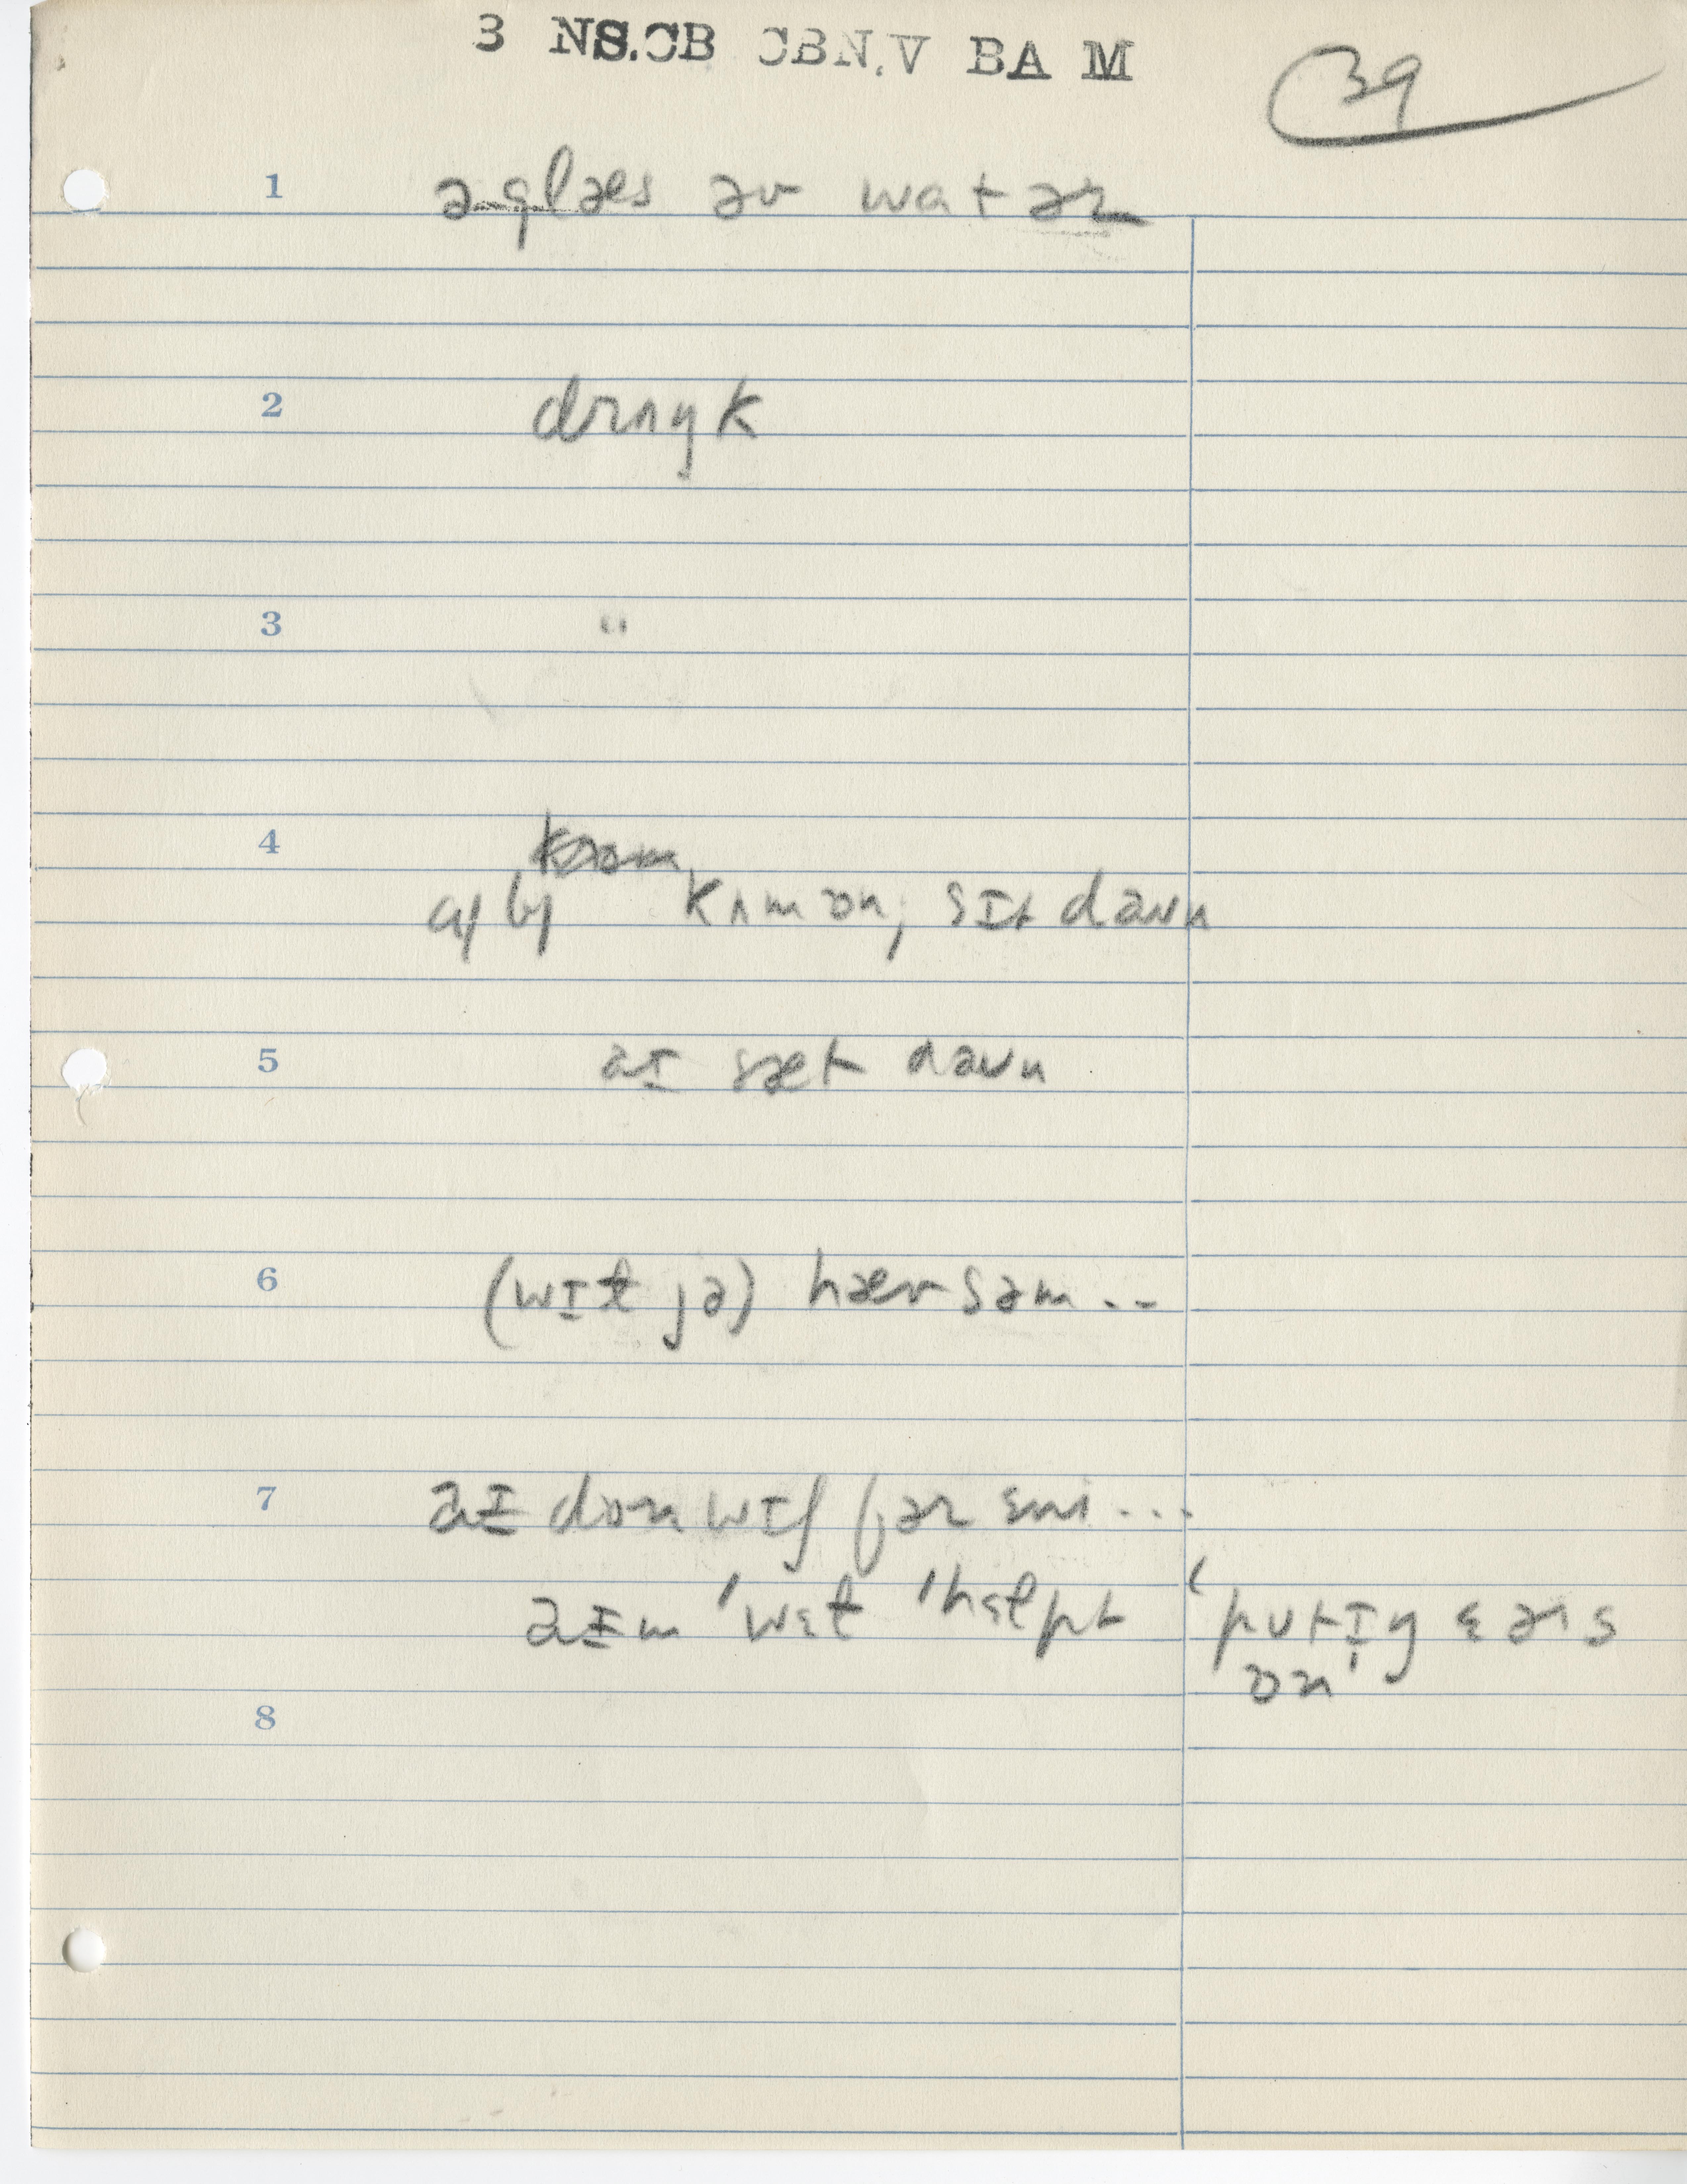 3 NS.CB CBN.V BA M
39
1 ə glæs əv watər
2 drʌŋk
3 "
4
a/ b/ kʌm ɔn; sɪt daʊn
5 aɪ sæt daʊn
6 (wɪt jə) hæv səm . .
7 aɪ don wɪʃ fər ɛni . . .
aɪm 'wɛt 'hɛlpt 'putɪŋ
ɔn
8